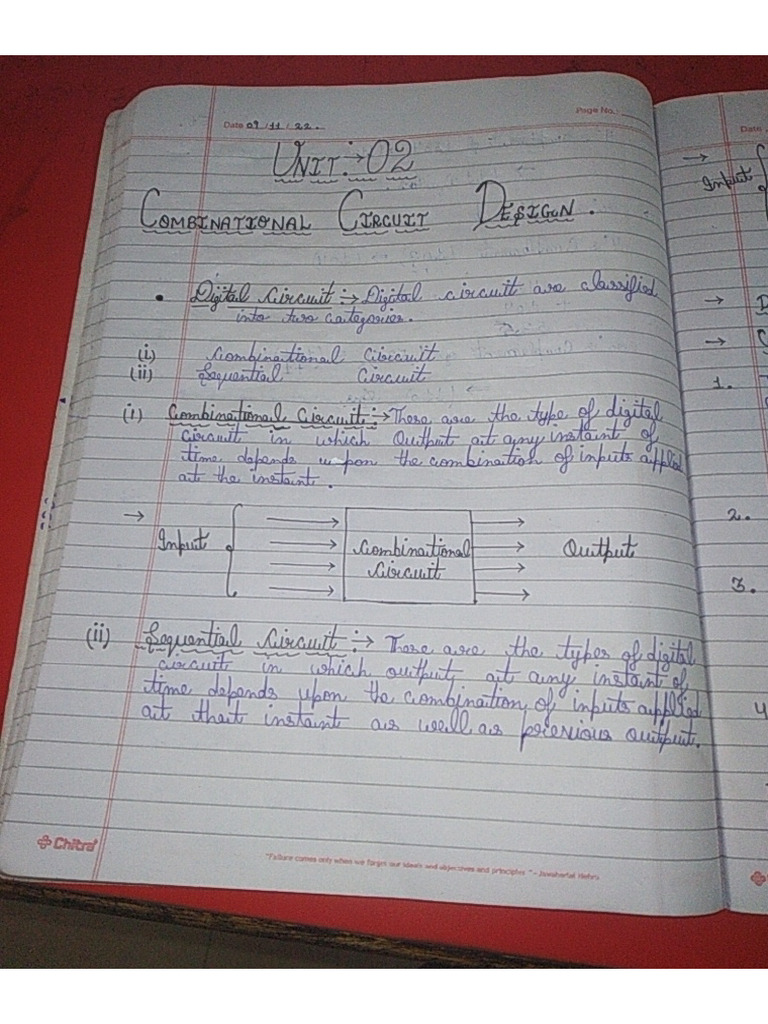 Page No.:
Date 09/11/22.
UNIT:→02
COMBINATIONAL CIRCUIT DESIGN.
• Digital Circuit:→ Digital circuit are classified
into two categories.
(i) Combinational Circuit
(ii) Sequential Circuit
(i) Combinational Circuit:→ There are the type of digital
circuit in which Output at any instant of
time depends upon the combination of inputs applied
at the instant.
→ Input
Combinational
Circuit
Output
(ii) Sequential Circuit:→ There are the types of digital
circuit in which output at any instant of
time depends upon the combination of inputs applied
at that instant as well as previous output.
Chitra
"Failure comes only when we forget our ideals and objectives and principles " - Jawaharlal Nehru
Date
→
Input
→ D
→ C
1.
2.
3.
4